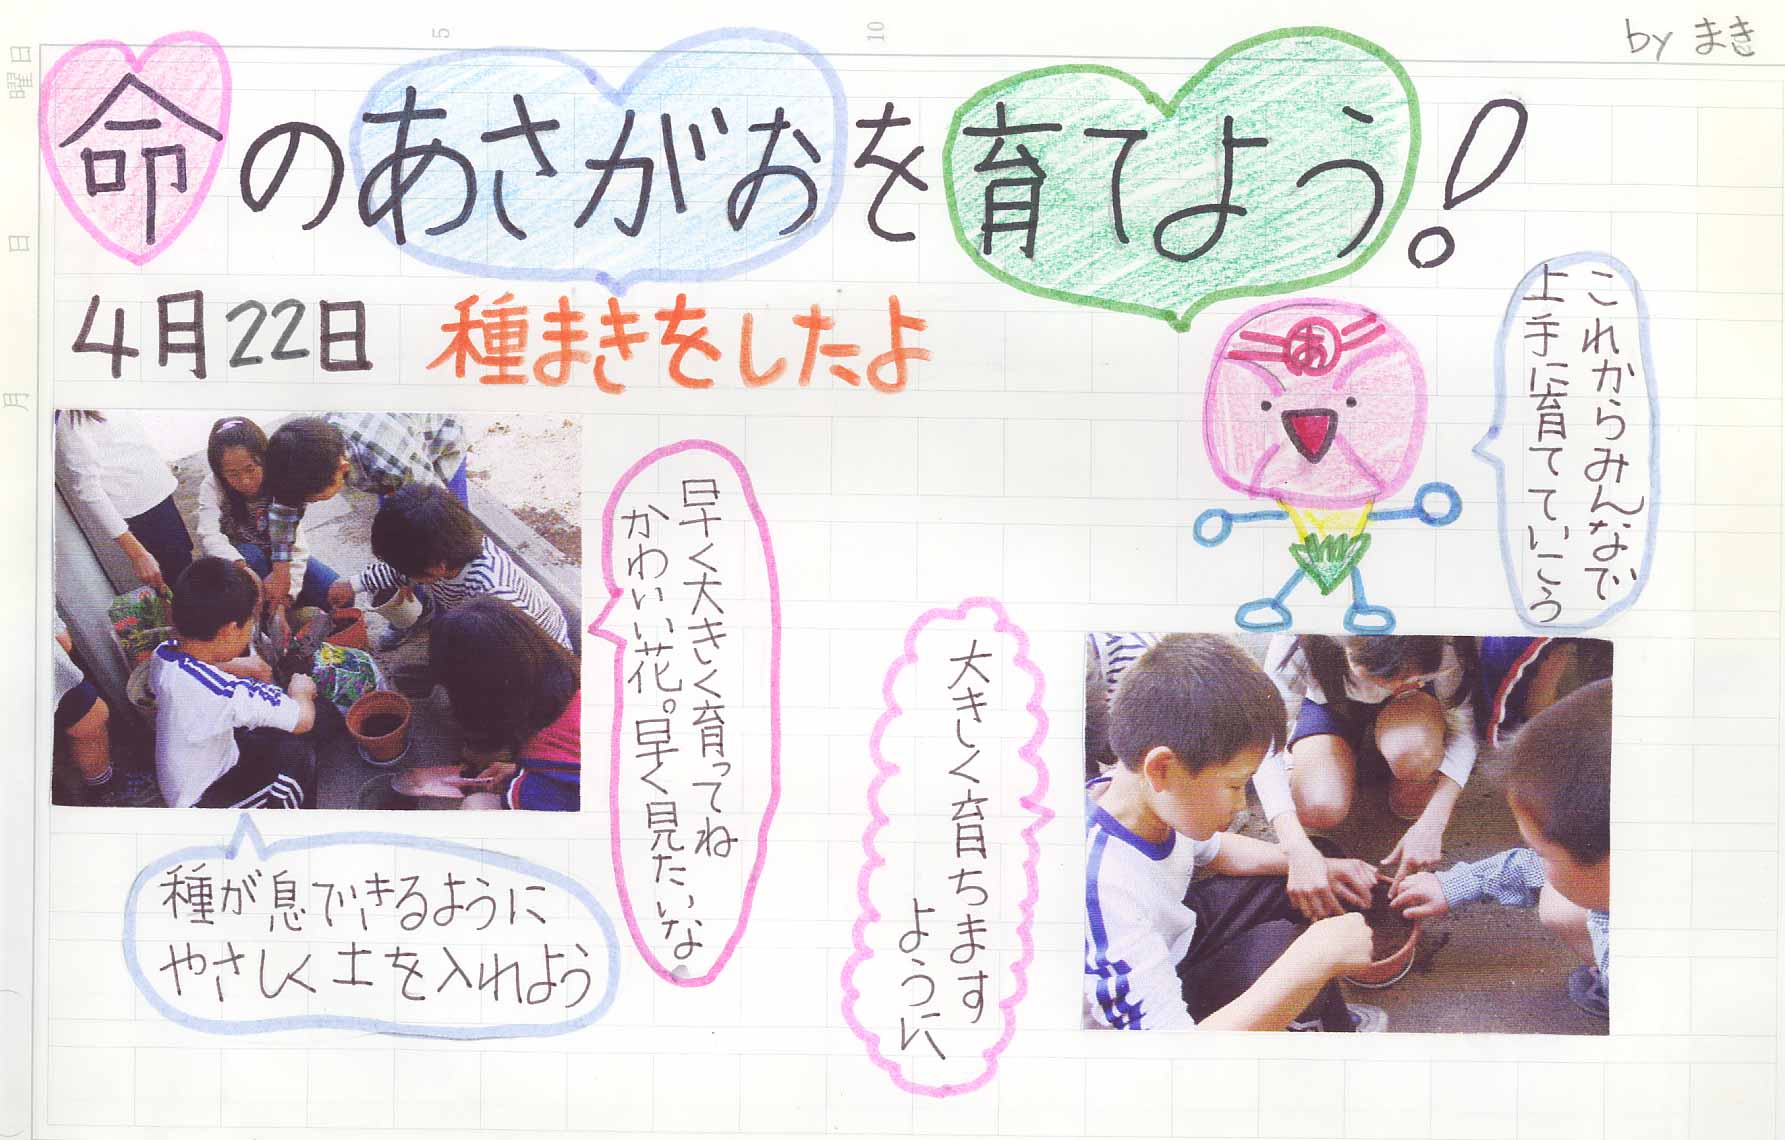 by まき
5
10
曜日
日
月
命のあさがおを育てよう!
4月22日 種まきをしたよ
あ
これからみんなで
上手に育てていこう
早く大きく育ってね
かわいい花。早く見たいな。
大きく育ちます
ように
種が息できるように
やさしく土を入れよう